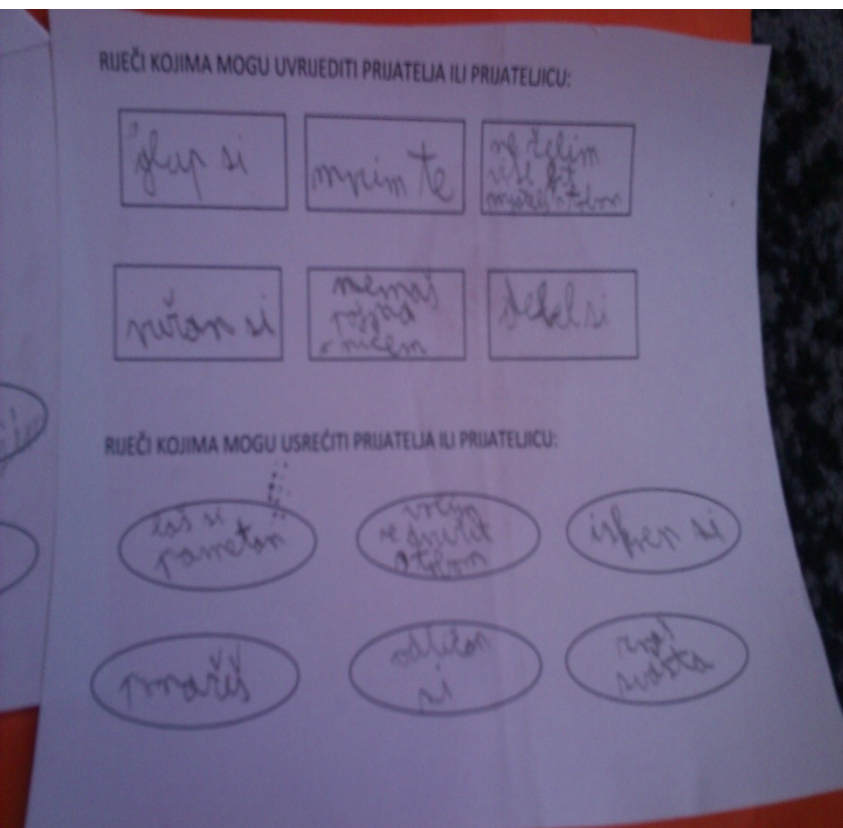 RIJEČI KOJIMA MOGU UVRIJEDITI PRIJATELJA ILI PRIJATELJICU:
glup si
mrzim te
ne želim
više bit
s tobom
ružan si
nemaš
pojma
o ničem
debel si
RIJEČI KOJIMA MOGU USREĆITI PRIJATELJA ILI PRIJATELJICU:
baš si
pametan
volim
se družit
s tobom
iskren si
pomažeš
odličan
si
znaš
svašta